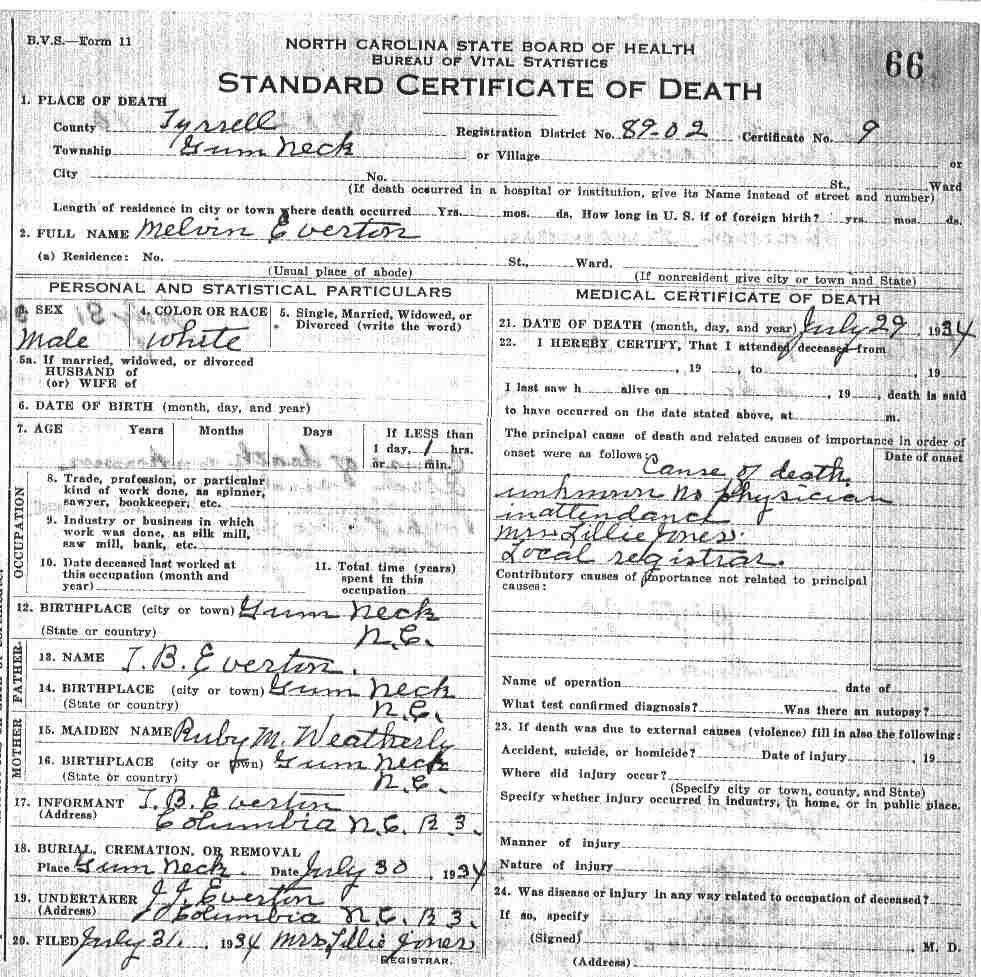 B.V.S.—Form 11
NORTH CAROLINA STATE BOARD OF HEALTH
BUREAU OF VITAL STATISTICS
66
STANDARD CERTIFICATE OF DEATH
1. PLACE OF DEATH
County Tyrrell Registration District No. 89-02 Certificate No. 9
Township Gum Neck or Village or
City No. St., Ward
(If death occurred in a hospital or institution, give its Name instead of street and number)
Length of residence in city or town where death occurred Yrs. mos. ds. How long in U. S. if of foreign birth? yrs. mos. ds.
2. FULL NAME Melvin Everton
(a) Residence: No. St., Ward.
(Usual place of abode) (If nonresident give city or town and State)
PERSONAL AND STATISTICAL PARTICULARS
3. SEX 4. COLOR OR RACE 5. Single, Married, Widowed, or
Divorced (write the word)
Male White
5a. If married, widowed, or divorced
HUSBAND of
(or) WIFE of
6. DATE OF BIRTH (month, day, and year)
7. AGE Years Months Days If LESS than
1 day, 1 hrs.
or min.
OCCUPATION
8. Trade, profession, or particular
kind of work done, as spinner,
sawyer, bookkeeper, etc.
9. Industry or business in which
work was done, as silk mill,
saw mill, bank, etc.
10. Date deceased last worked at
this occupation (month and
year)
11. Total time (years)
spent in this
occupation
12. BIRTHPLACE (city or town) Gum Neck
(State or country) N.C.
FATHER
13. NAME I. B. Everton.
14. BIRTHPLACE (city or town) Gum Neck
(State or country) N.C.
MOTHER
15. MAIDEN NAME Ruby M. Weatherly
16. BIRTHPLACE (city or town) Gum Neck
(State or country) N.C.
17. INFORMANT I. B. Everton
(Address) Columbia N.C. R 3.
18. BURIAL, CREMATION, OR REMOVAL
Place Gum Neck. Date July 30 1934
19. UNDERTAKER J. J. Everton
(Address) Columbia N.C. R 3.
20. FILED July 31. 1934 Mrs. Lillie Jones
REGISTRAR.
MEDICAL CERTIFICATE OF DEATH
21. DATE OF DEATH (month, day, and year) July 29 1934
22. I HEREBY CERTIFY, That I attended deceased from
, 19 , to , 19
I last saw h alive on , 19 , death is said
to have occurred on the date stated above, at m.
The principal cause of death and related causes of importance in order of
onset were as follows: Date of onset
Cause of death
unknown No physician
in attendance
Mrs. Lillie Jones.
Local registrar.
Contributory causes of importance not related to principal
causes:
Name of operation date of
What test confirmed diagnosis? Was there an autopsy?
23. If death was due to external causes (violence) fill in also the following:
Accident, suicide, or homicide? Date of injury , 19
Where did injury occur?
(Specify city or town, county, and State)
Specify whether injury occurred in industry, in home, or in public place.
Manner of injury
Nature of injury
24. Was disease or injury in any way related to occupation of deceased?
If so, specify
(Signed) , M. D.
(Address)